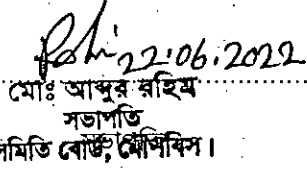 22.06.2022
মোঃ আব্দুর রহিম
সভাপতি
সমিতি বোর্ড,